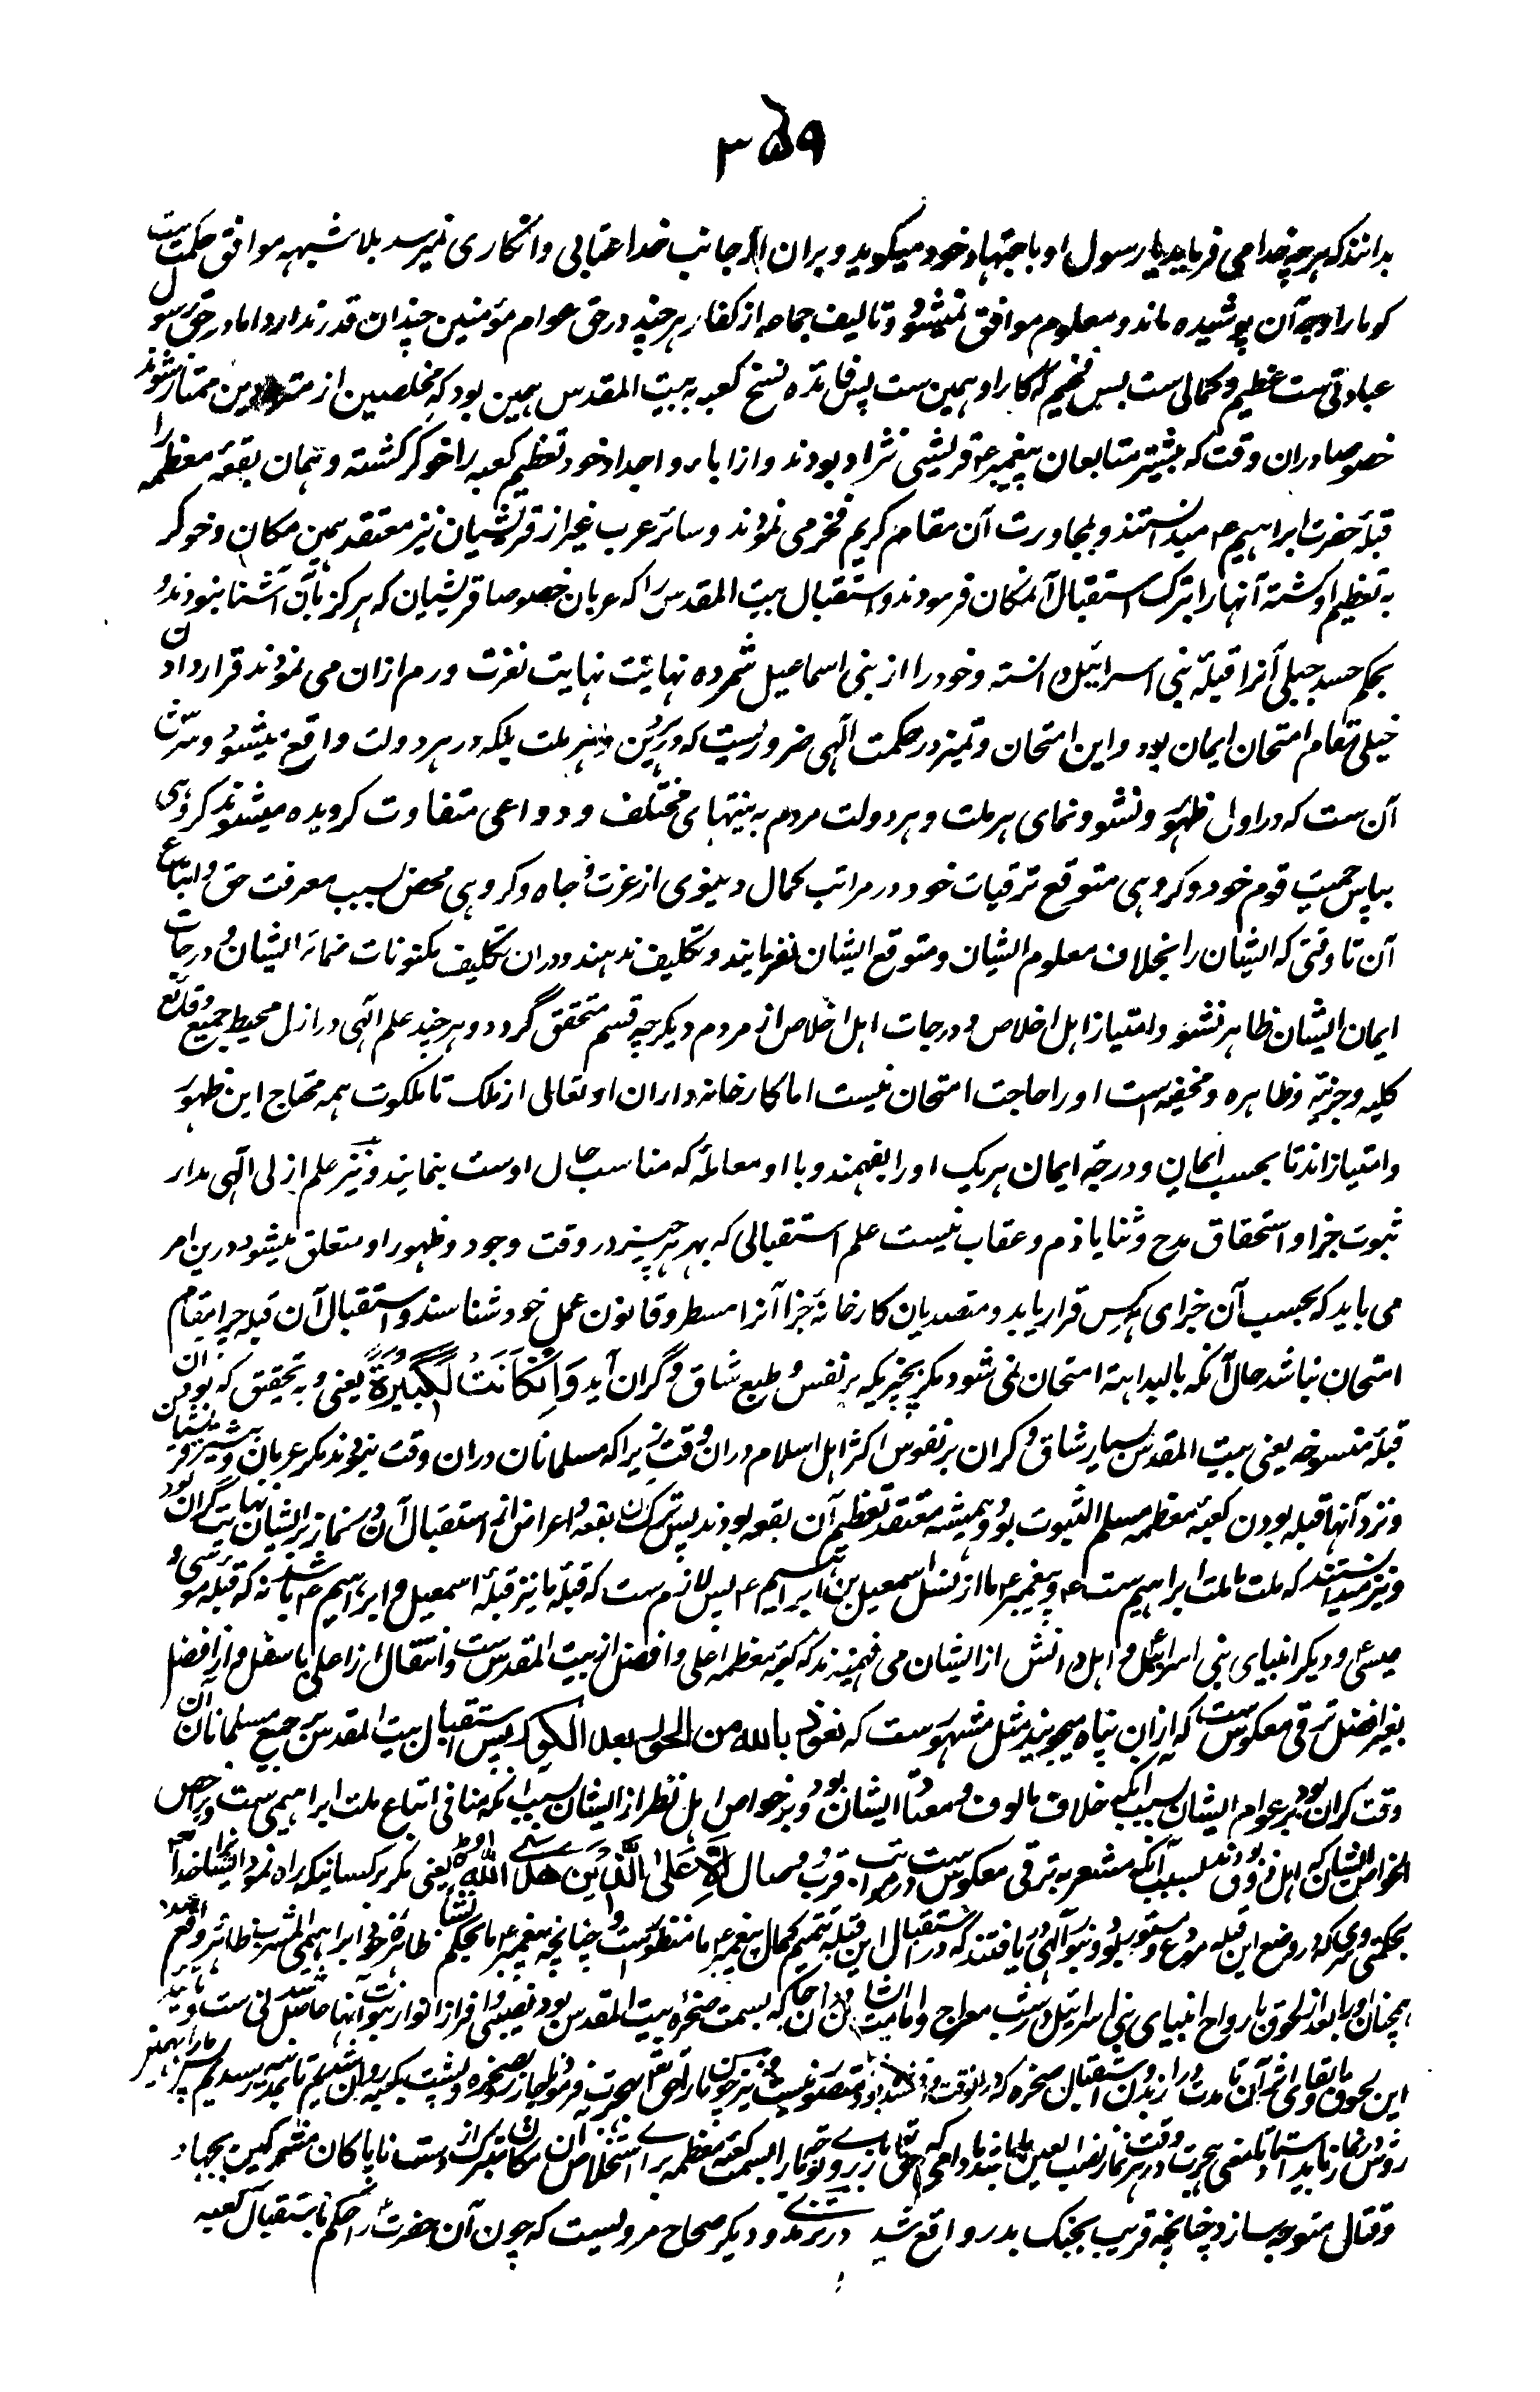 ۳۵۹
بدانند که هرچه خدا می فرماید یا رسول او باجتهاد خود میگوید و بران از جانب خدا عتابی و انکاری نمیرسد بلا شبهه موافق حکمت ست
گو ما را وجه آن پوشیده ماند و معلوم موافق نمیشود و تالیف جماعه از کفار هرچند در حق عوام مؤمنین چندان قدر ندارد اما در حق رسول
عبادتی ست عظیم و کمالی ست بس فخیم که کار او همین ست پس فائده نسخ کعبه به بیت المقدس همین بود که مخلصین از متمردین ممتاز شوند
خصوصا دران وقت که بیشتر متابعان پیغمبر ع قریشی نژاد بودند و از اباء و اجداد خود تعظیم کعبه را خوگر گشته و همان بقعه معظمه را
قبله حضرت ابراهیم ع میدانستند و بمجاورت آن مقام کریم فخر می نمودند و سائر عرب غیر از قریشیان نیز معتقد همین مکان و خوگر
به تعظیم او گشته آنها را بترک استقبال آنمکان فرمودند و استقبال بیت المقدس را که عربان خصوصا قریشیان که هرگز بآن آشنا نبودند و
بحکم حسد جبلی آنرا قبله بنی اسرائیل دانسته و خود را از بنی اسماعیل شمرده نهایت نهایت نفرت و رم ازان می نمودند قرار دادن
خیلی مقام امتحان ایمان بود و این امتحان و تمیز در حکمت الهی ضروریست که در هر دین و هر ملت بلکه در هر دولت واقع میشود و سرش
آن ست که در اول ظهور و نشو و نمای هر ملت و هر دولت مردم به نیتهای مختلف و دواعی متفاوت گرویده میشوند گروهی
بپاس حمیت قوم خود و گروهی متوقع ترقیات خود در مراتب کمال دنیوی از عزت و جاه و گروهی محض بسبب معرفت حق و اتباع
آن تا وقتی که ایشان را بخلاف معلوم ایشان و متوقع ایشان نفرمایند و تکلیف ندهند و دران تکلیف مکنونات ضمائر ایشان و درجات
ایمان ایشان ظاهر نشود و امتیاز اهل اخلاص و درجات اهل اخلاص از مردم دیگر چه قسم متحقق گردد و هرچند علم الهی در ازل محیط جمیع وقائع
کلیه و جزئیه و ظاهره و مخفیه است او را حاجت امتحان نیست اما کارخانه داران او تعالی از ملک تا ملکوت همه محتاج این ظهور
و امتیاز اند تا بحسب ایمان و درجه ایمان هر یک او را بفهمند و با او معامله که مناسب حال اوست بنمایند و نیز علم ازلی الهی مدار
ثبوت جزا و استحقاق مدح و ثنا یا ذم و عقاب نیست علم استقبالی که بهر چیز در وقت وجود و ظهور او متعلق میشود درین امر
می باید که بحسب آن جزای هر کس قرار یابد و متصدیان کارخانه جزا آنرا مسطر و قانون عمل خود شناسند و استقبال آن قبله چرا مقام
امتحان نباشد حال آنکه بالبداهه امتحان نمی شود مگر بچیزیکه بر نفس و طبع شاق و گران آید وَاِنْ كَانَتْ لَكَبِيْرَةً یعنی و به تحقیق که بود آن
قبله منسوخه یعنی بیت المقدس بسیار شاق و گران بر نفوس اکثر اهل اسلام دران وقت زیرا که مسلمانان دران وقت نبودند مگر عربان و بیشتر قریشیان
و نزد آنها قبله بودن کعبه معظمه مسلم الثبوت بود و همیشه معتقد تعظیم آن بقعه بودند پس ترک آن بقعه و اعراض از استقبال آن در نماز بر ایشان نهایت گران بود
و نیز میدانستند که ملت ما ملت ابراهیم ست ع و پیغمبر ع ما از نسل اسمعیل بن ابراهیم ع پس لازم ست که قبله ما نیز قبله اسمعیل و ابراهیم ع باشد نه که قبله موسی و
عیسی و دیگر انبیای بنی اسرائیل و اهل دانش از ایشان می فهمیدند که کعبه معظمه اعلی و افضل از بیت المقدس ست و انتقال از اعلی باسفل و از افضل
بغیر افضل ترقی معکوس ست که ازان پناه میجویند مثل مشهور ست که نعوذ بالله من الحور بعد الکور پس استقبال بیت المقدس بر جمیع مسلمانان آن
وقت گران بود بر عوام ایشان بسبب آنکه خلاف مالوف و معتاد ایشان بود و بر خواص اهل نظر از ایشان بسبب آنکه منافی اتباع ملت ابراهیمی ست و بر اخص
الخواص ایشان که اهل ذوق بودند بسبب آنکه مشعر به ترقی معکوس ست در مراتب قرب و وصال اِلَّا عَلَى الَّذِيْنَ هَدَى اللّٰهُ یعنی مگر بر کسانیکه راه نمود ایشان را خدا تعالی
بحکمتی و سری که در وضع این قبله مودع و مستور بود و بنور الهی دریافتند که در استقبال این قبله تتمیم کمال پیغمبر ع ما منظور ست
همچنان او را بعد از لحوق بارواح انبیای بنی اسرائیل در شب معراج و امامت ایشان
این لحوق و بقای اثر آن تا مدت دراز بدون استقبال صخره که
روش در نماز
و قتال متوجه سازد چنانچه قریب بجنگ بدر واقع شد در ترمذی و دیگر صحاح مرویست که چون آن حضرت را حکم باستقبال کعبه